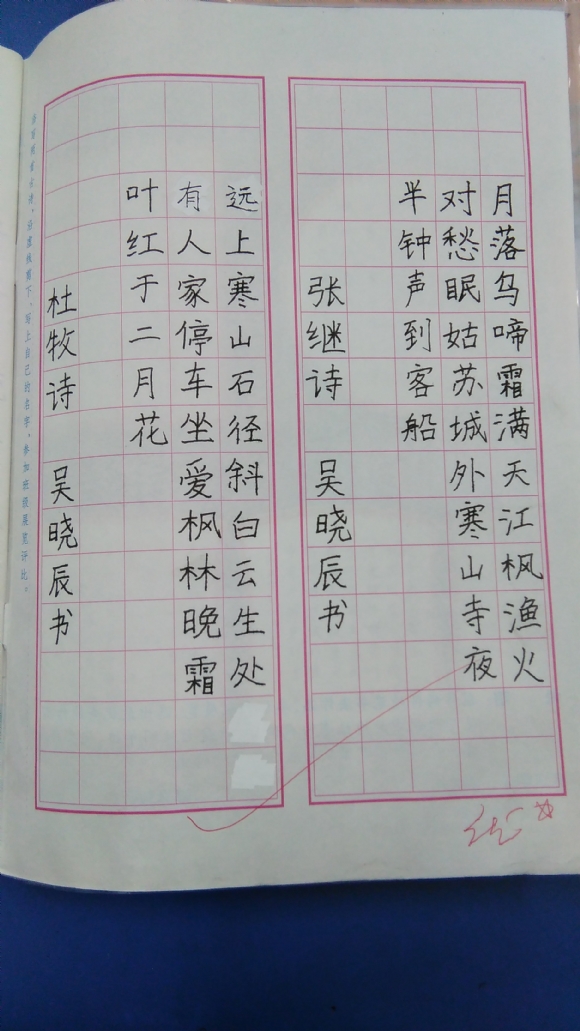 月落乌啼霜满天江枫渔火
对愁眠姑苏城外寒山寺夜
半钟声到客船
张继诗 吴晓辰书
远上寒山石径斜白云生处
有人家停车坐爱枫林晚霜
叶红于二月花
杜牧诗 吴晓辰书
沿虚线剪下，写上自己的名字，参加班级展览评比。
优